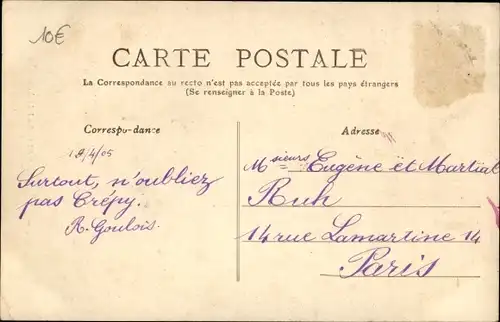 10€
CARTE POSTALE
La Correspondance au recto n'est pas acceptée par tous les pays étrangers
(Se renseigner à la Poste)
Correspondance
Adresse
19/4/05
Surtout, n'oubliez
pas Crépy.
R. Goulois.
Msieurs Eugène et Martial
Ruh
14 rue Lamartine 14
Paris